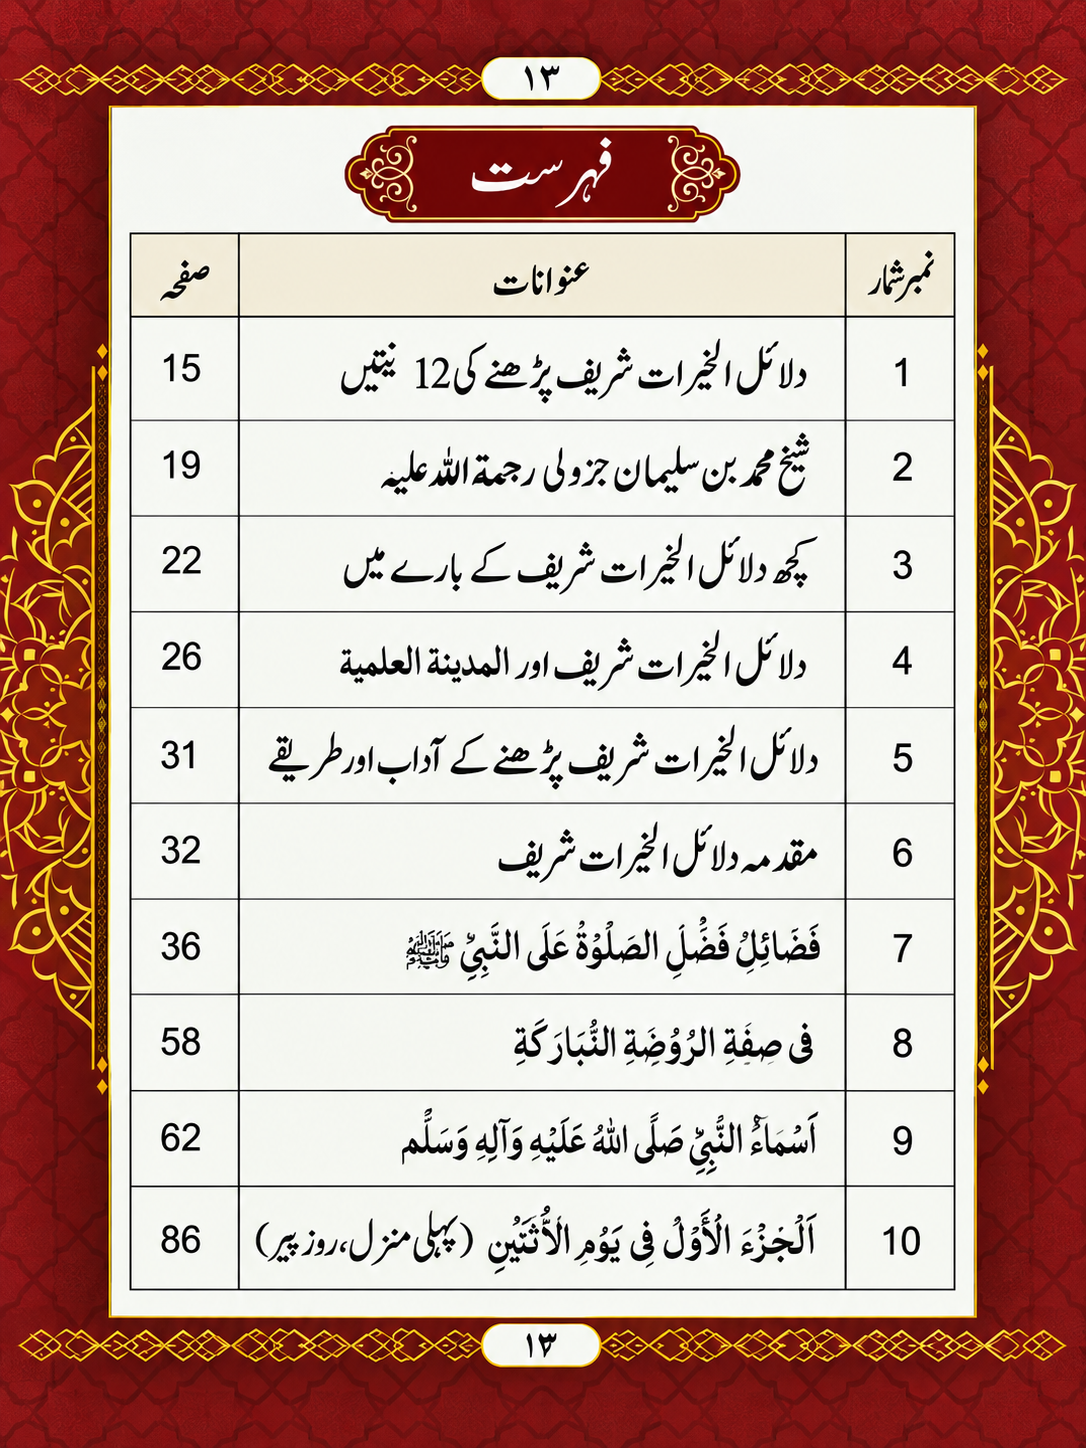 ۱۳
فہرست
نمبرشمار عنوانات صفحہ
1 دلائل الخیرات شریف پڑھنے کی 12 نیتیں 15
2 شیخ محمد بن سلیمان جزولی رحمة اللہ علیہ 19
3 کچھ دلائل الخیرات شریف کے بارے میں 22
4 دلائل الخیرات شریف اور المدينة العلمية 26
5 دلائل الخیرات شریف پڑھنے کے آداب اور طریقے 31
6 مقدمہ دلائل الخیرات شریف 32
7 فَضَائِلُ فَضْلِ الصَلٰوةُ عَلَى النَّبِيِّ ﷺ 36
8 فی صِفَةِ الرُوُضَةِ النُّبَارَكَةِ 58
9 اَسْمَاءُ النَّبِيِّ صَلَّى اللهُ عَلَيْهِ وَآلِهِ وَسَلَّم 62
10 اَلْجُزْءَ الْأَوَّلُ فِی يَوْمِ الْاُثَنَيْنِ (پہلی منزل، روز پیر) 86
۱۳